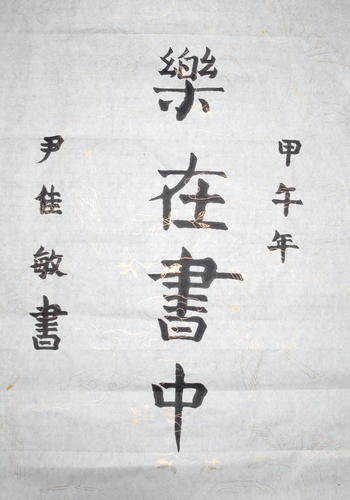 甲午年
樂在書中
尹佳敏書